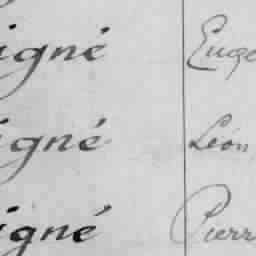 igné Euge
igné Léon
igné Pierr